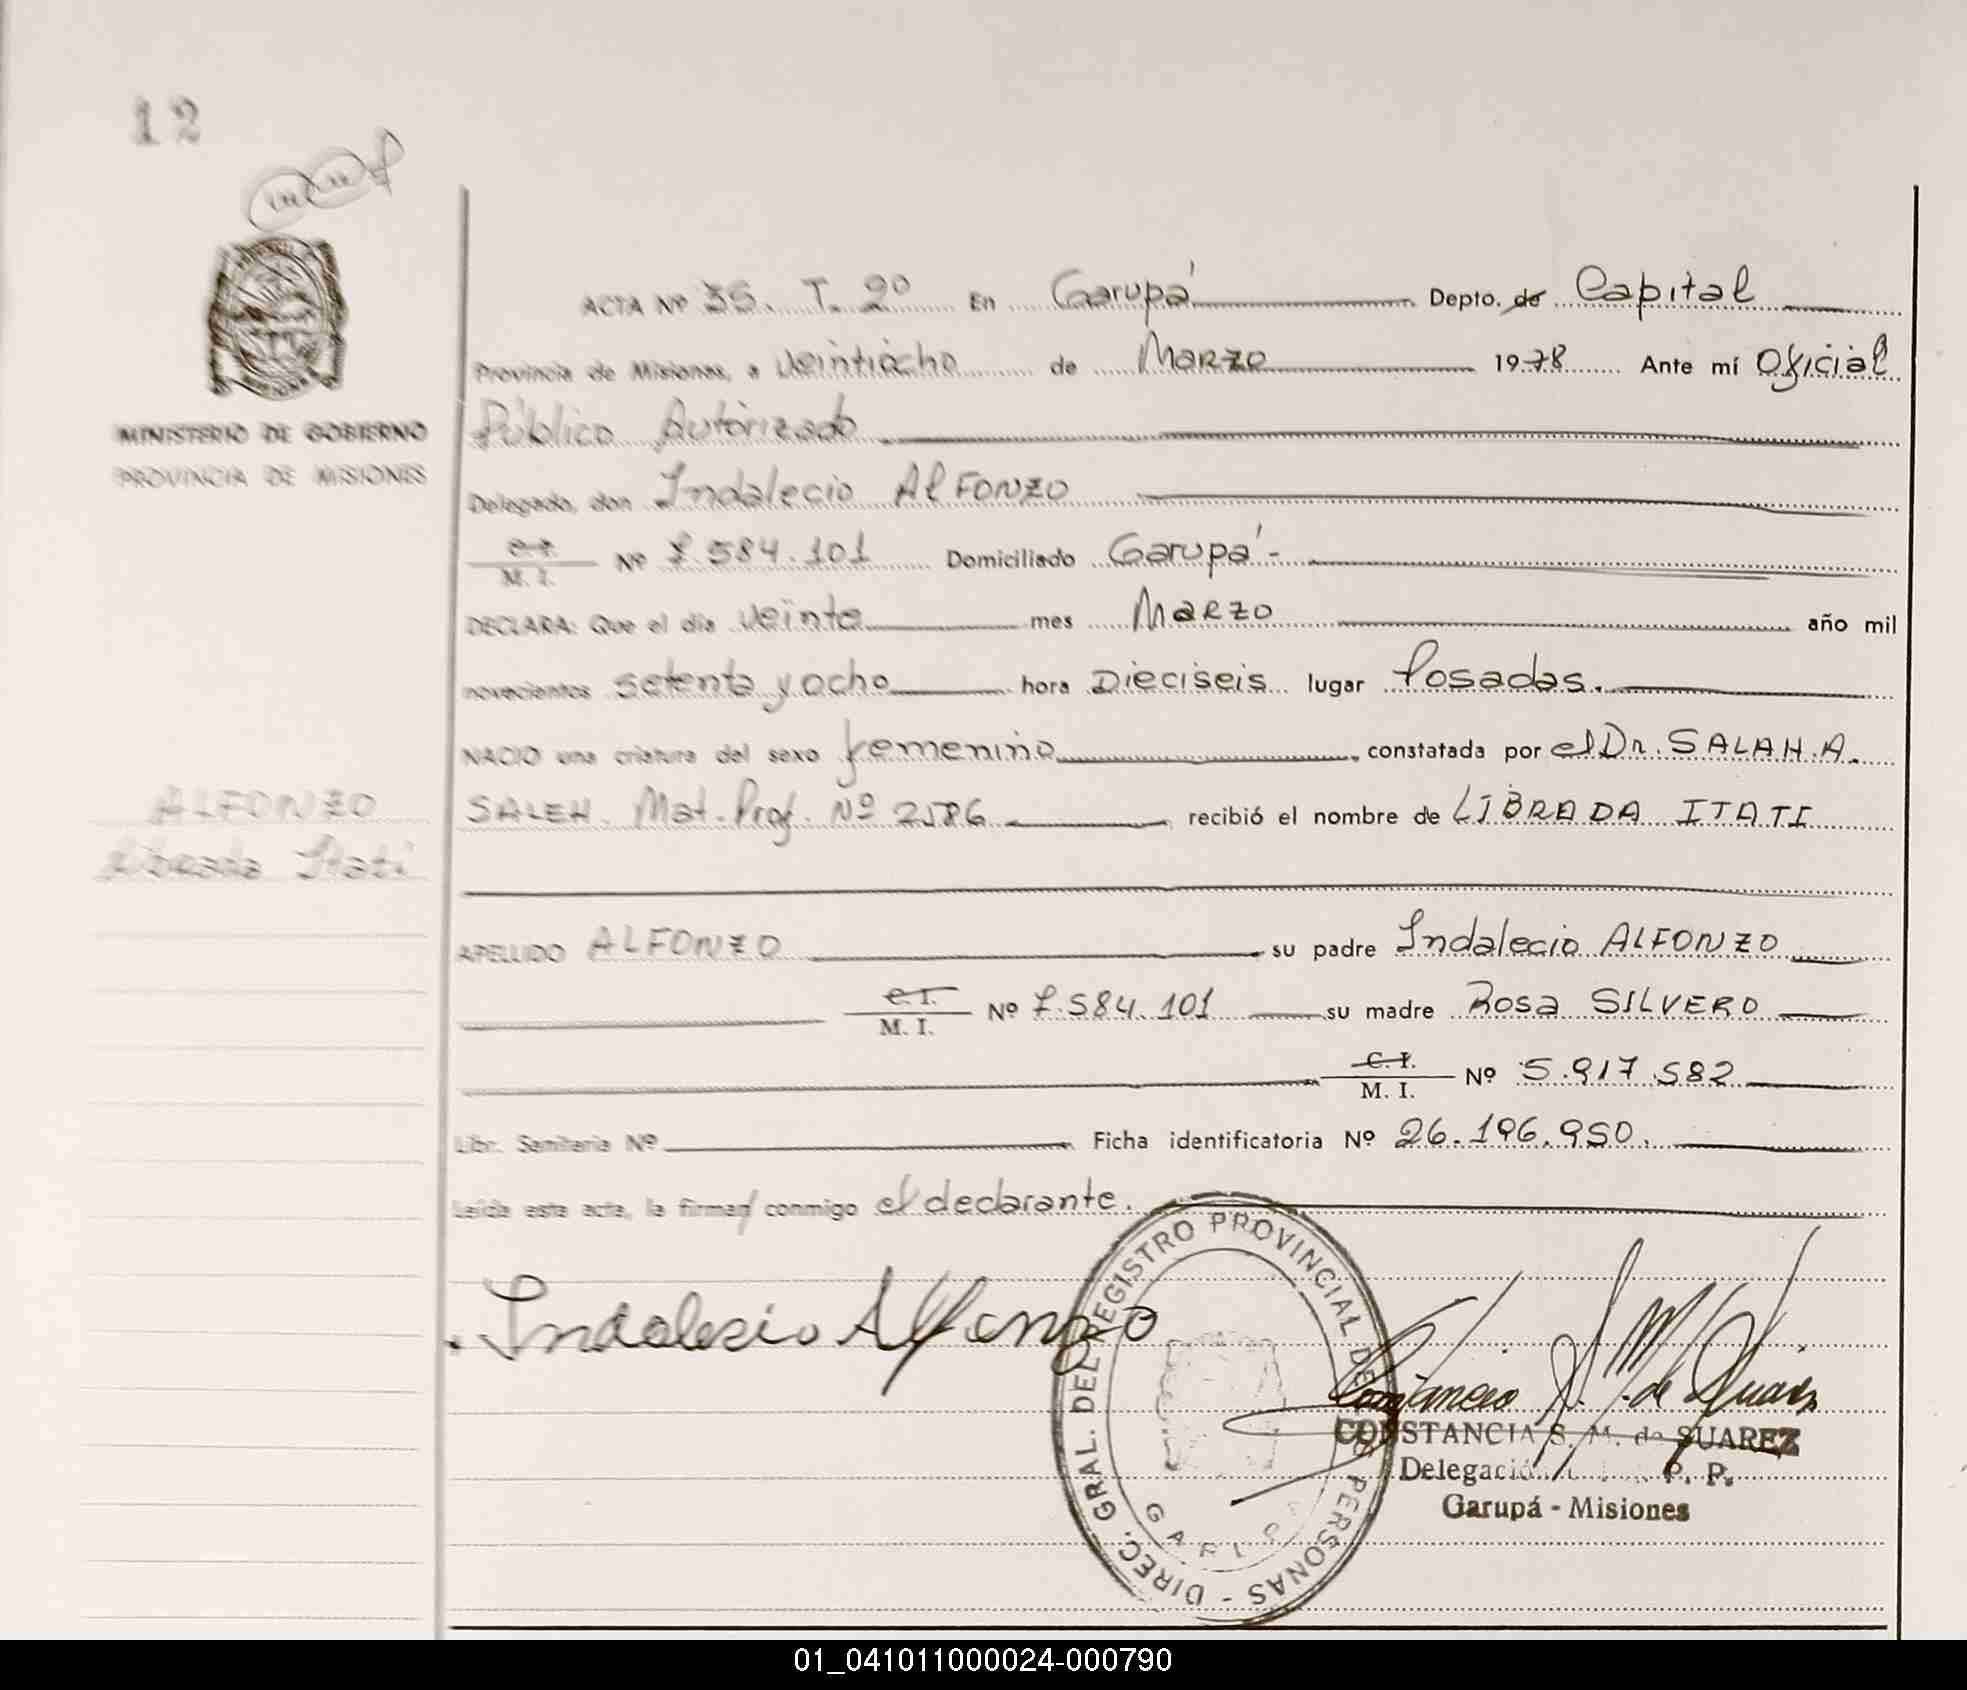 12
MINISTERIO DE GOBIERNO
PROVINCIA DE MISIONES
ACTA Nº 35. T. 2º En Garupá Depto. de Capital
Provincia de Misiones, a veintiocho de Marzo 1978 Ante mí Oficial
Público Autorizado
Delegado, don Indalecio AlFONZO
C.I.
M. I. Nº 7.584.101 Domiciliado Garupá-
DECLARA: Que el día veinte mes Marzo año mil
novecientos setenta y ocho hora Dieciseis lugar Posadas.
NACIO una criatura del sexo femenino, constatada por el Dr. SALAH.A.
ALFONZO
Librada Itatí
SALEH. Mat. Prof. Nº 2586 recibió el nombre de LIBRADA ITATI
APELLIDO ALFONZO su padre Indalecio ALFONZO
C. I.
M. I. Nº 7.584.101 su madre Rosa SILVERO
C. I.
M. I. Nº 5.917.582
Libr. Sanitaria Nº Ficha identificatoria Nº 26.196.950.
Leída esta acta, la firman conmigo el declarante.
Indalecio Alfonzo
DIREC. GRAL. DEL REGISTRO PROVINCIAL DE PERSONAS -
Constancia S. M. de Suarez
CONSTANCIA S. M. de SUAREZ
Delegación P. P.
Garupá - Misiones
01_041011000024-000790